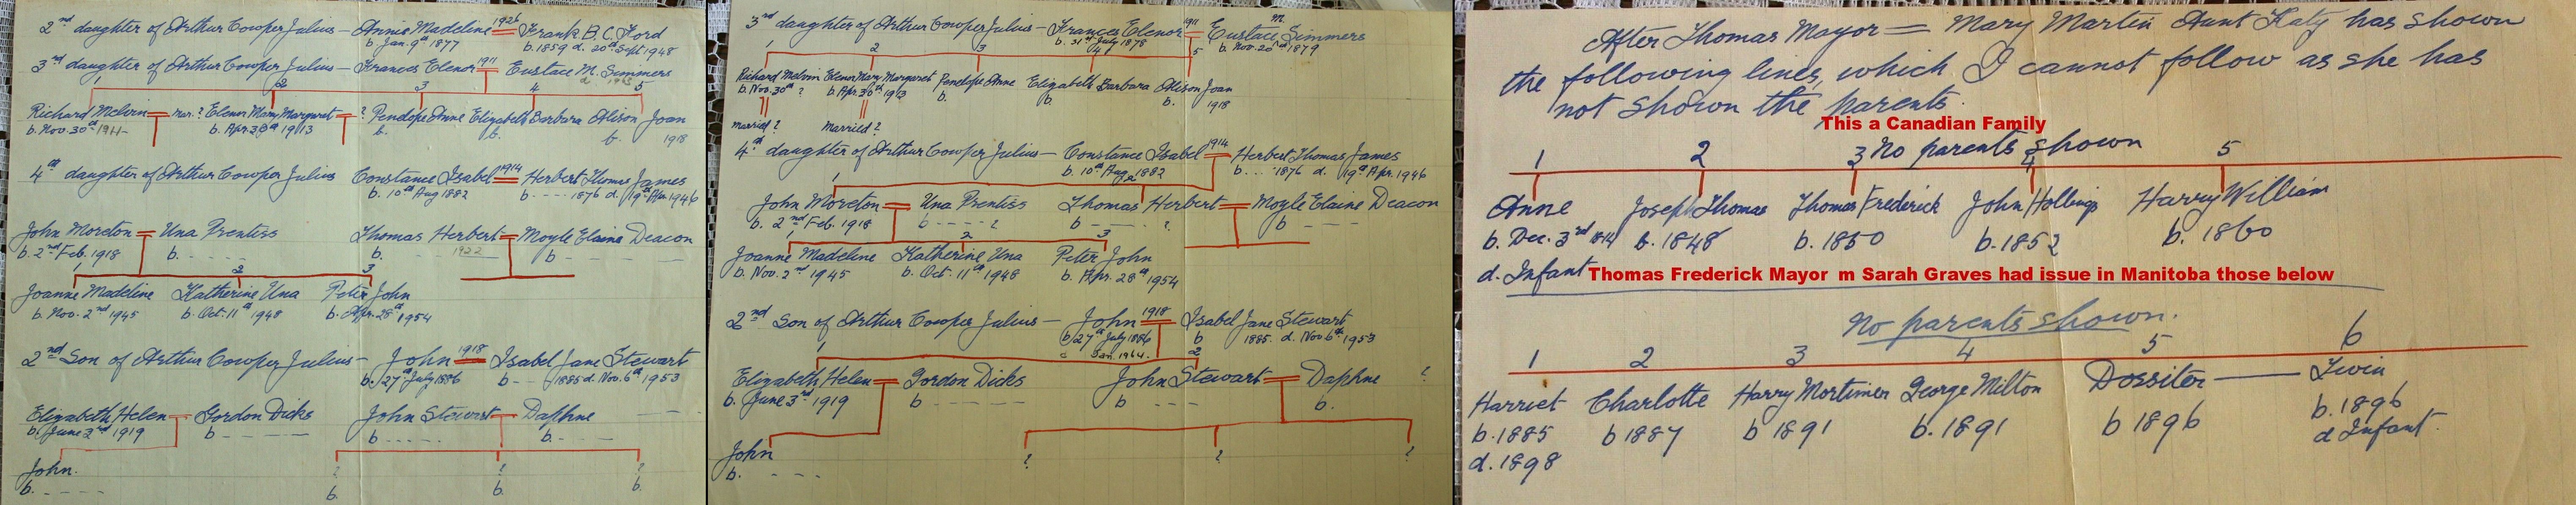 2nd daughter of Arthur Cowper Julius — Annie Madeline 1926 Frank B.C. Ford
b. Jan. 9th 1877 b. 1859 d. 20th Sept 1948
3rd daughter of Arthur Cowper Julius — Frances Elenor 1911 Eustace M. Simmers
1 2 3 4 5
Richard Melvin mar. ? Elenor Mary Margaret ? Penelope Anne Elizabeth Barbara Alison Joan
b. Nov. 30th 1911 b. Apr. 30th 1913 b. b. b. 1918
4th daughter of Arthur Cowper Julius Constance Isabel 1914 Herbert Thomas James
b. 10th Aug 1882 b. - - - - 1876 d. 19th Apr. 1946
John Moreton Una Prentiss Thomas Herbert Moyle Elaine Deacon
b. 2nd Feb. 1918 b. - - - - b. 1922 b - - - -
1 2 3
Joanne Madeline Katherine Una Peter John
b. Nov. 2nd 1945 b. Oct. 11th 1948 b. Apr. 28th 1954
2nd Son of Arthur Cowper Julius — John 1918 Isabel Jane Stewart
b. 27th July 1886 b - - 1885 d. Nov. 6th 1953
Elizabeth Helen Gordon Dicks John Stewart Daphne
b. June 3rd 1919 b - - - - - b - - - - b. - - - -
John. ? ? ?
b. - - - - b. b. b.
3rd daughter of Arthur Cowper Julius — Frances Elenor 1911 Eustace M. Simmers
b. 31st July 1878 b. Nov. 20th 1879
1 2 3 4 5
Richard Melvin Elenor Mary Margaret Penelope Anne Elizabeth Barbara Alison Joan
b. Nov. 30th ? b. Apr. 30th 1913 b. b. b. 1918
Married ? Married ?
4th daughter of Arthur Cowper Julius — Constance Isabel 1914 Herbert Thomas James
b. 10th Aug. 1882 b. - - - 1876 d. 19th Apr. 1946
1 2
John Moreton Una Prentiss Thomas Herbert Moyle Elaine Deacon
b. 2nd Feb. 1918 b - - - - ? b - - - - ? b - - - -
1 2 3
Joanne Madeline Katherine Una Peter John
b. Nov. 2nd 1945 b. Oct. 11th 1948 b. Apr. 28th 1954
2nd Son of Arthur Cowper Julius — John 1918 Isabel Jane Stewart
b 27th July 1886 b 1885. d. Nov 6th 1953
Jan. 1964.
1 2
Elizabeth Helen Gordon Dicks John Stewart Daphne ?
b. June 3rd 1919 b - - - - - b - - - b.
John ? ? ?
b. - - - -
After Thomas Mayor = Mary Martin Aunt Katy has shown
the following lines, which I cannot follow as she has
not shown the parents.
This a Canadian Family
No parents shown
1 2 3 4 5
Anne Joseph Thomas Thomas Frederick John Hollings Harry William
b. Dec. 3rd b. 1848 b. 1850 b. 1852 b. 1860
d. Infant
Thomas Frederick Mayor m Sarah Graves had issue in Manitoba those below
No parents shown.
1 2 3 4 5 6
Harriet Charlotte Harry Mortimer George Milton Dossiter —— Twin
b. 1885 b 1887 b 1891 b. 1891 b 1896 b. 1896
d. 1898 d Infant.